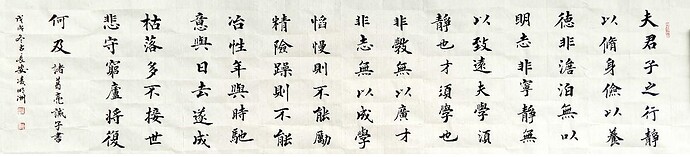 夫君子之行靜
以脩身儉以養
德非澹泊無以
明志非寧靜無
以致遠夫學須
靜也才須學也
非斆無以廣才
非志無以成學
慆慢則不能勵
精險躁則不能
冶性年與時馳
意與日去遂成
枯落多不接世
悲守窮廬將復
何及 諸葛亮誡子書
戊戌冬書長安